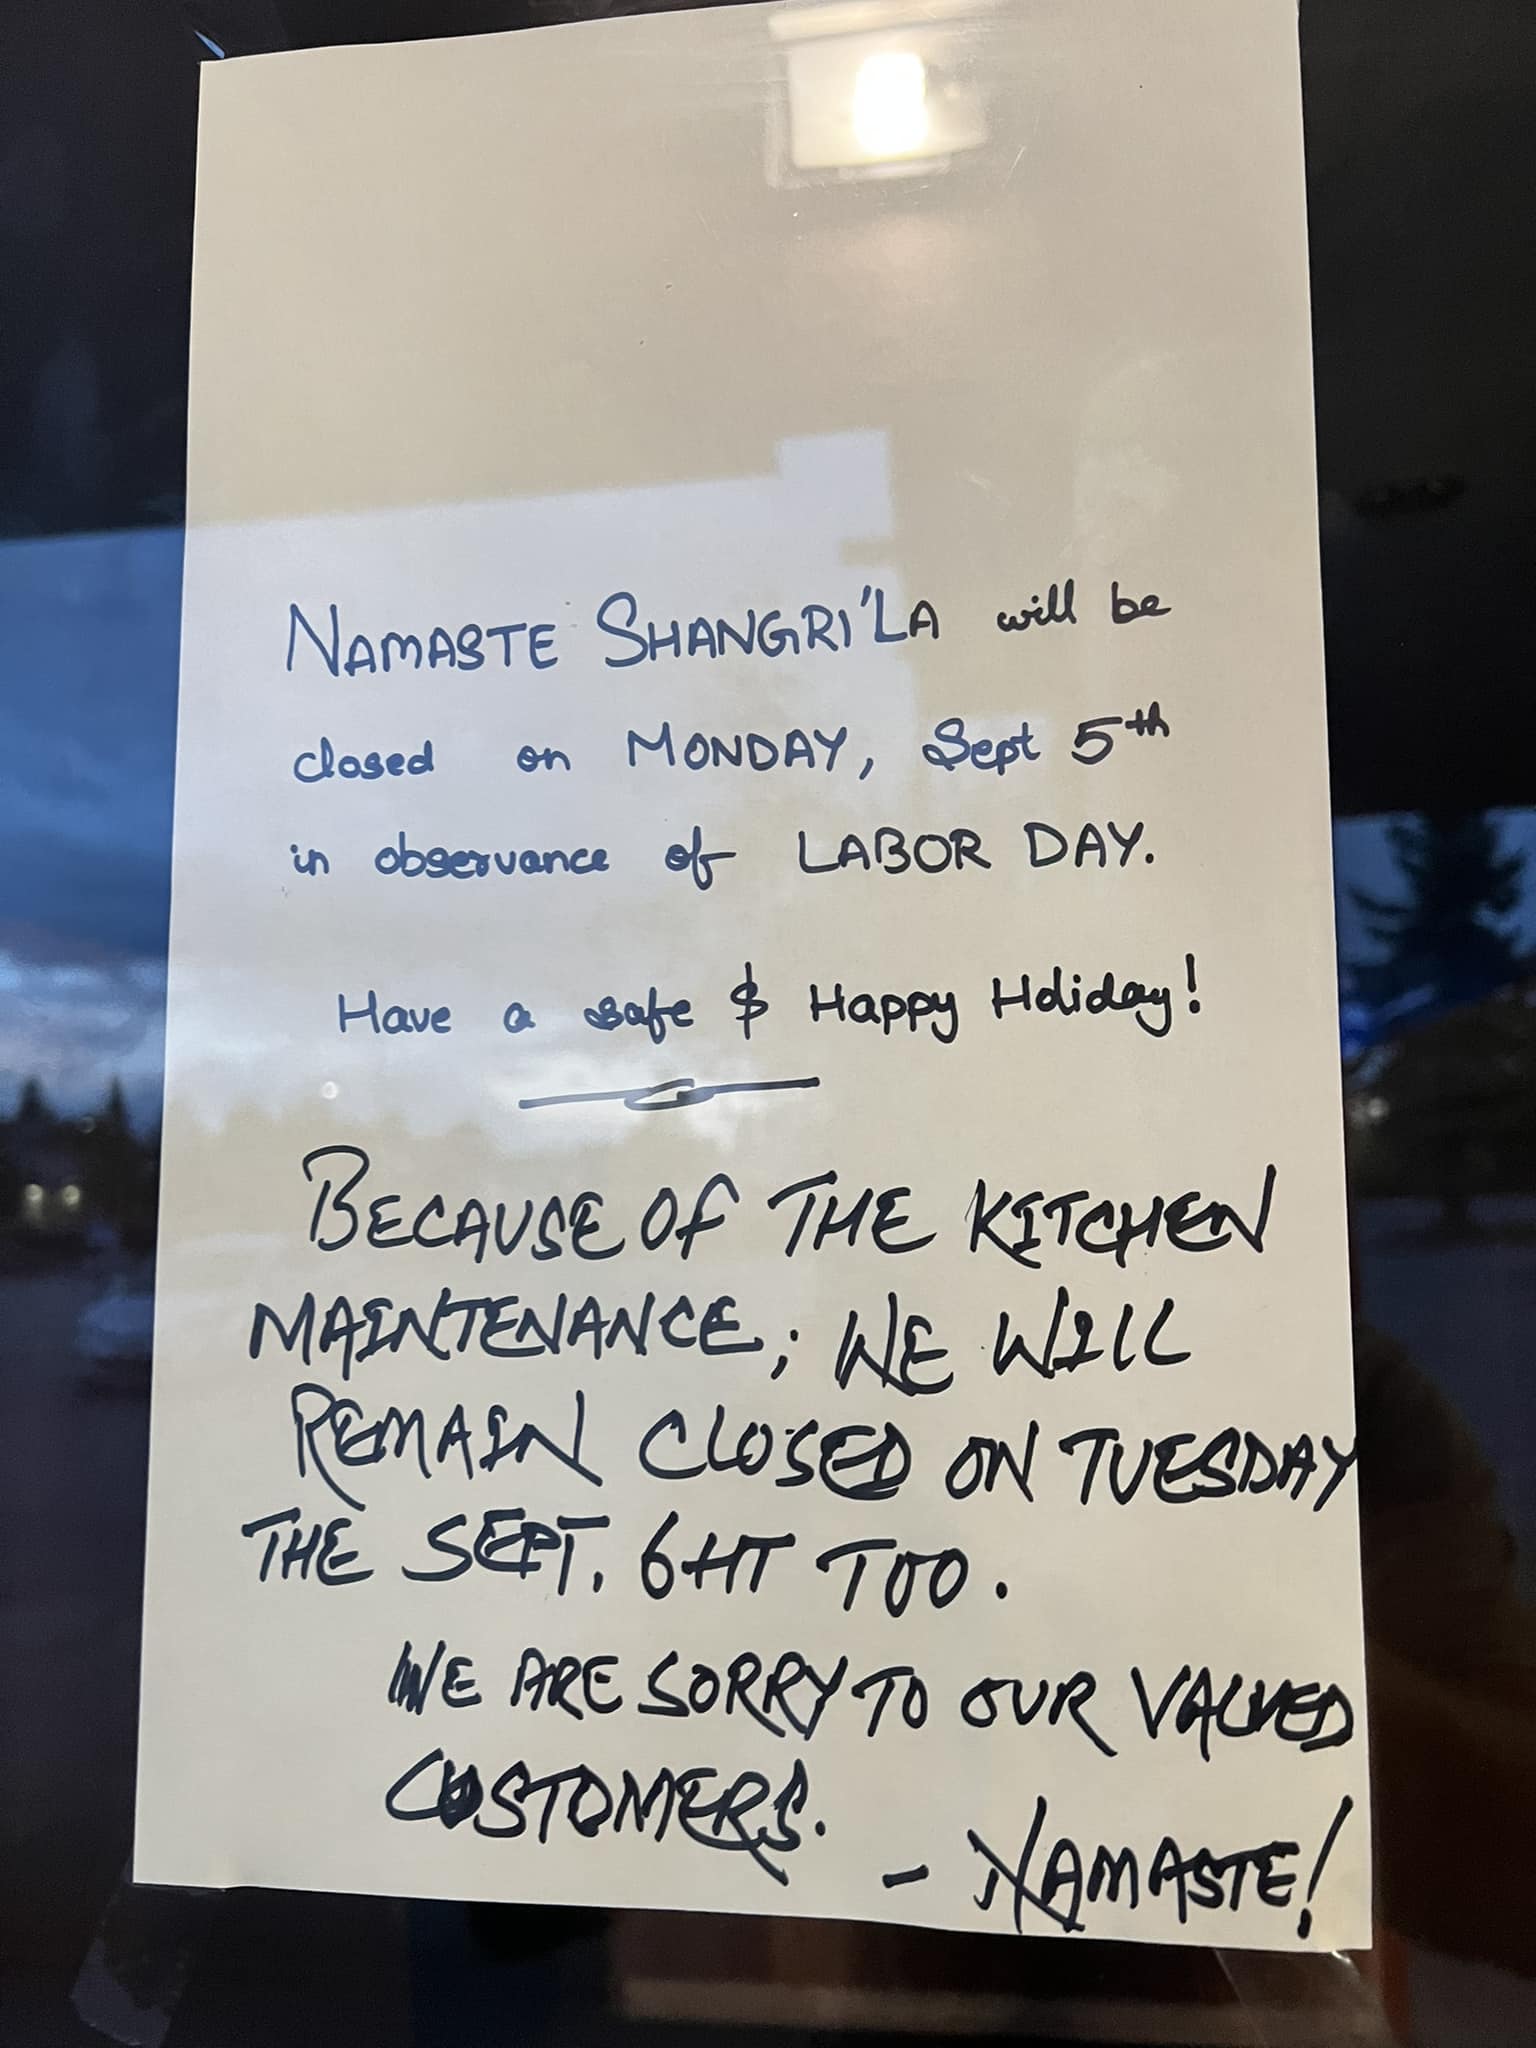 NAMASTE SHANGRI'LA will be
closed on MONDAY, Sept 5th
in observance of LABOR DAY.
Have a safe & Happy Holiday!
BECAUSE OF THE KITCHEN
MAINTENANCE; WE WILL
REMAIN CLOSED ON TUESDAY
THE SEPT. 6HT TOO.
WE ARE SORRY TO OUR VALUED
CUSTOMERS.
- NAMASTE!